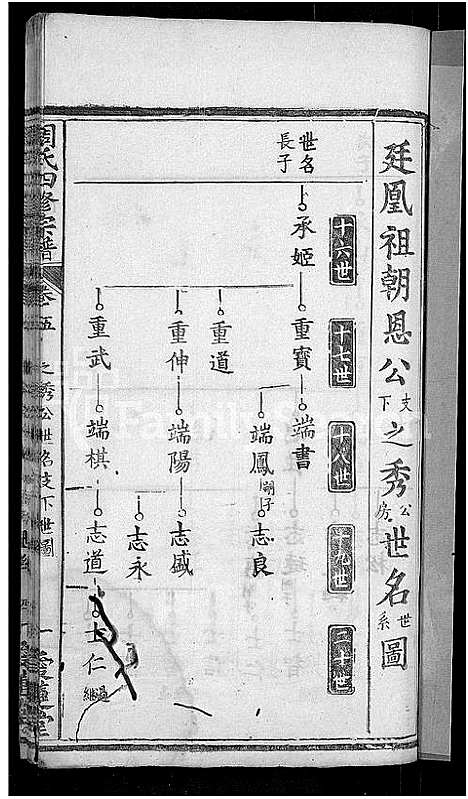 廷凰祖朝恩公支下之秀公房世名世系圖
十六世
十七世
十八世
十九世
二十世
世名長子
承姬
重寶
端書
端鳳嗣子
志良
重道
重伸
端陽
志盛
志永
重武
端棋
志道
士仁
過繼
周氏四修宗譜
卷五
之秀公世名支下世圖
一
愛蓮堂